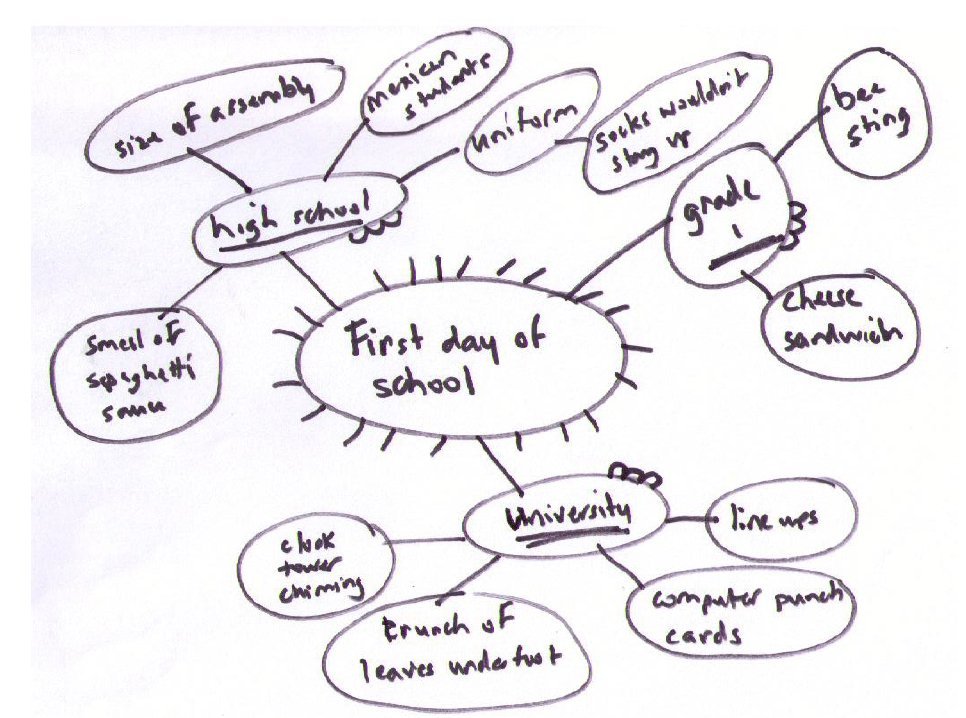 size of assembly
mexican
students
uniform
socks wouldn't
stay up
bee
sting
high school
grade
1
cheese
sandwich
First day of
school
smell of
spaghetti
sauce
university
line ups
clock
tower
chiming
computer punch
cards
crunch of
leaves underfoot